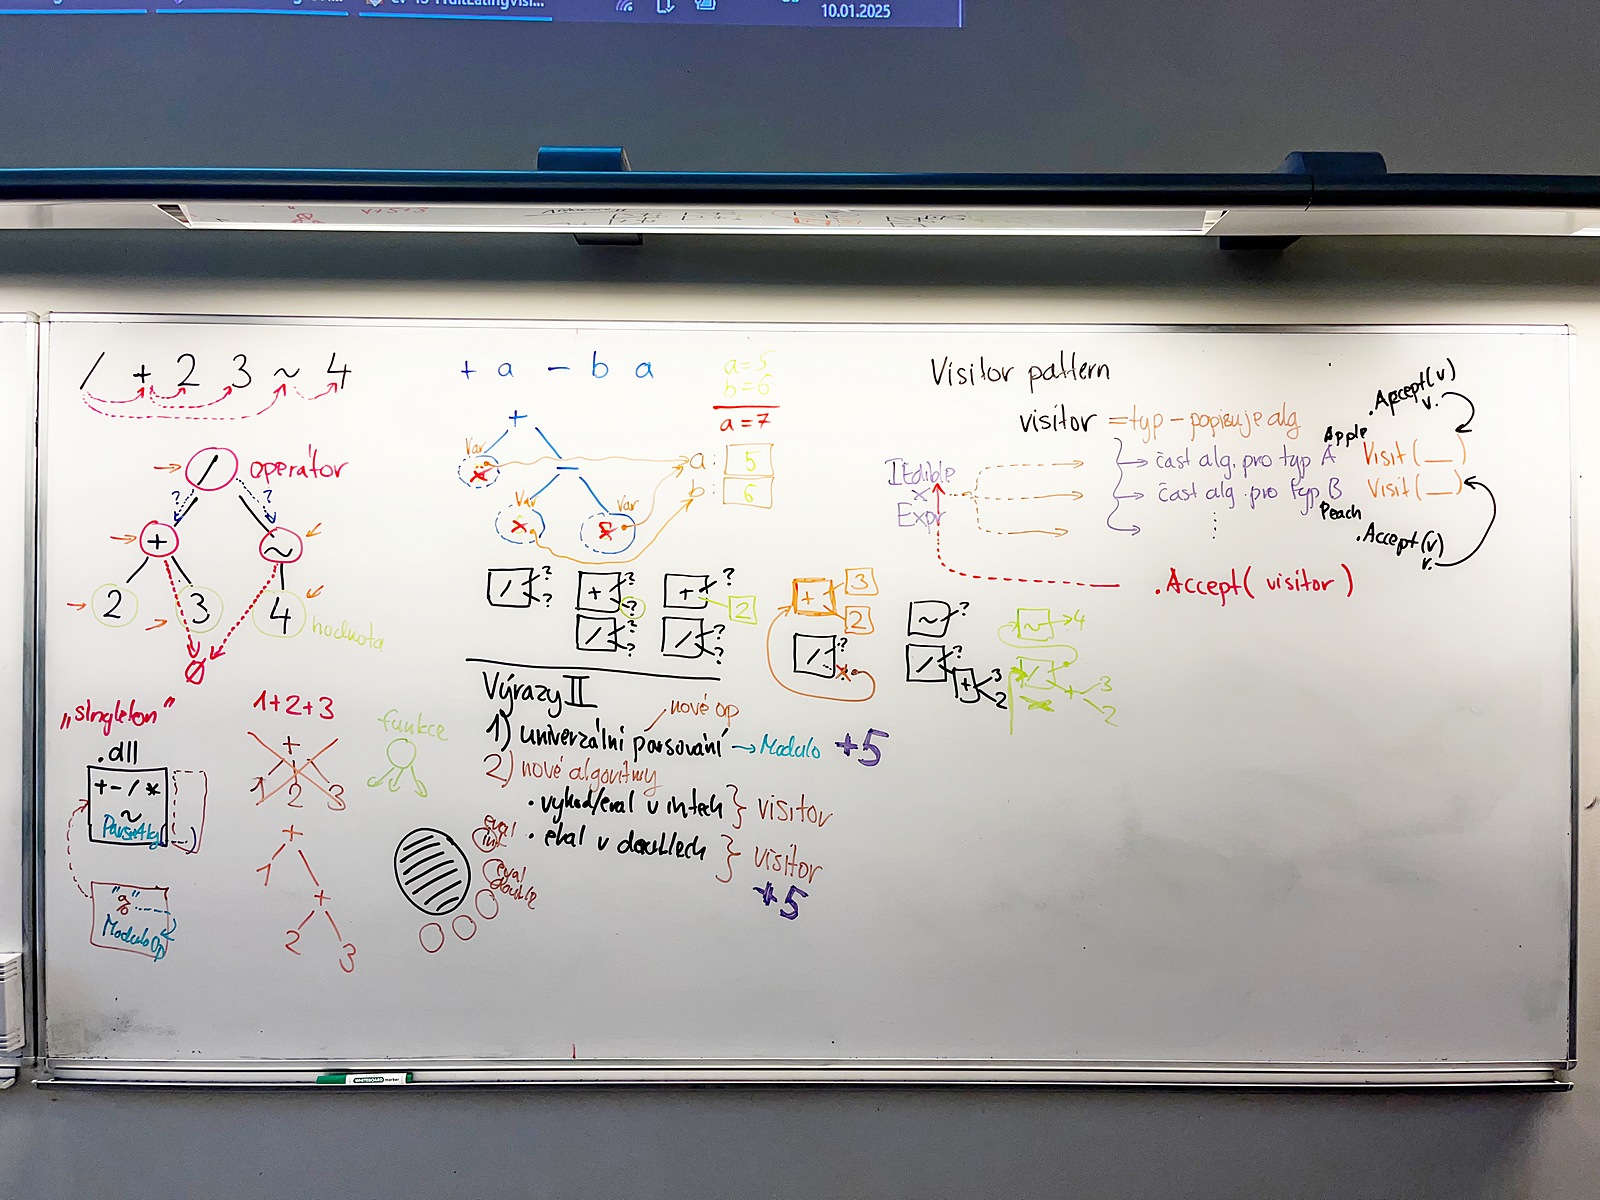 10.01.2025
/ + 2 3 ~ 4
/ operátor
? ?
+ ~
2 3 4 hodnota
0
"singleton"
.dll
+ - / *
~
"%"
ModuloOp
1+2+3
+
1 2 3
+
1 +
2 3
funkce
+ a - b a
a=5
b=6
a=7
+
Var
x
-
Var Var
x
a: 5
b: 6
/ ? ?
+ ? ?
/ ? ?
+ ? 2
/ ? ?
+ 3 2
/ ? x
~ ?
/ ? + 3 2
~ 4
/ + 3 2
Výrazy II
nové op
1) univerzální parsování → Modulo +5
2) nové algoritmy
• výhod/eval v intech } visitor
• eval v doublech } visitor
+5
eval int
eval double
Visitor pattern
visitor = typ - popisuje alg
.Accept(v)
v.
Apple
část alg. pro typ A Visit(__)
část alg. pro typ B Visit(__)
Peach
.Accept(v)
v.
IEdible
x
Expr
.Accept( visitor )
WHITEBOARD marker